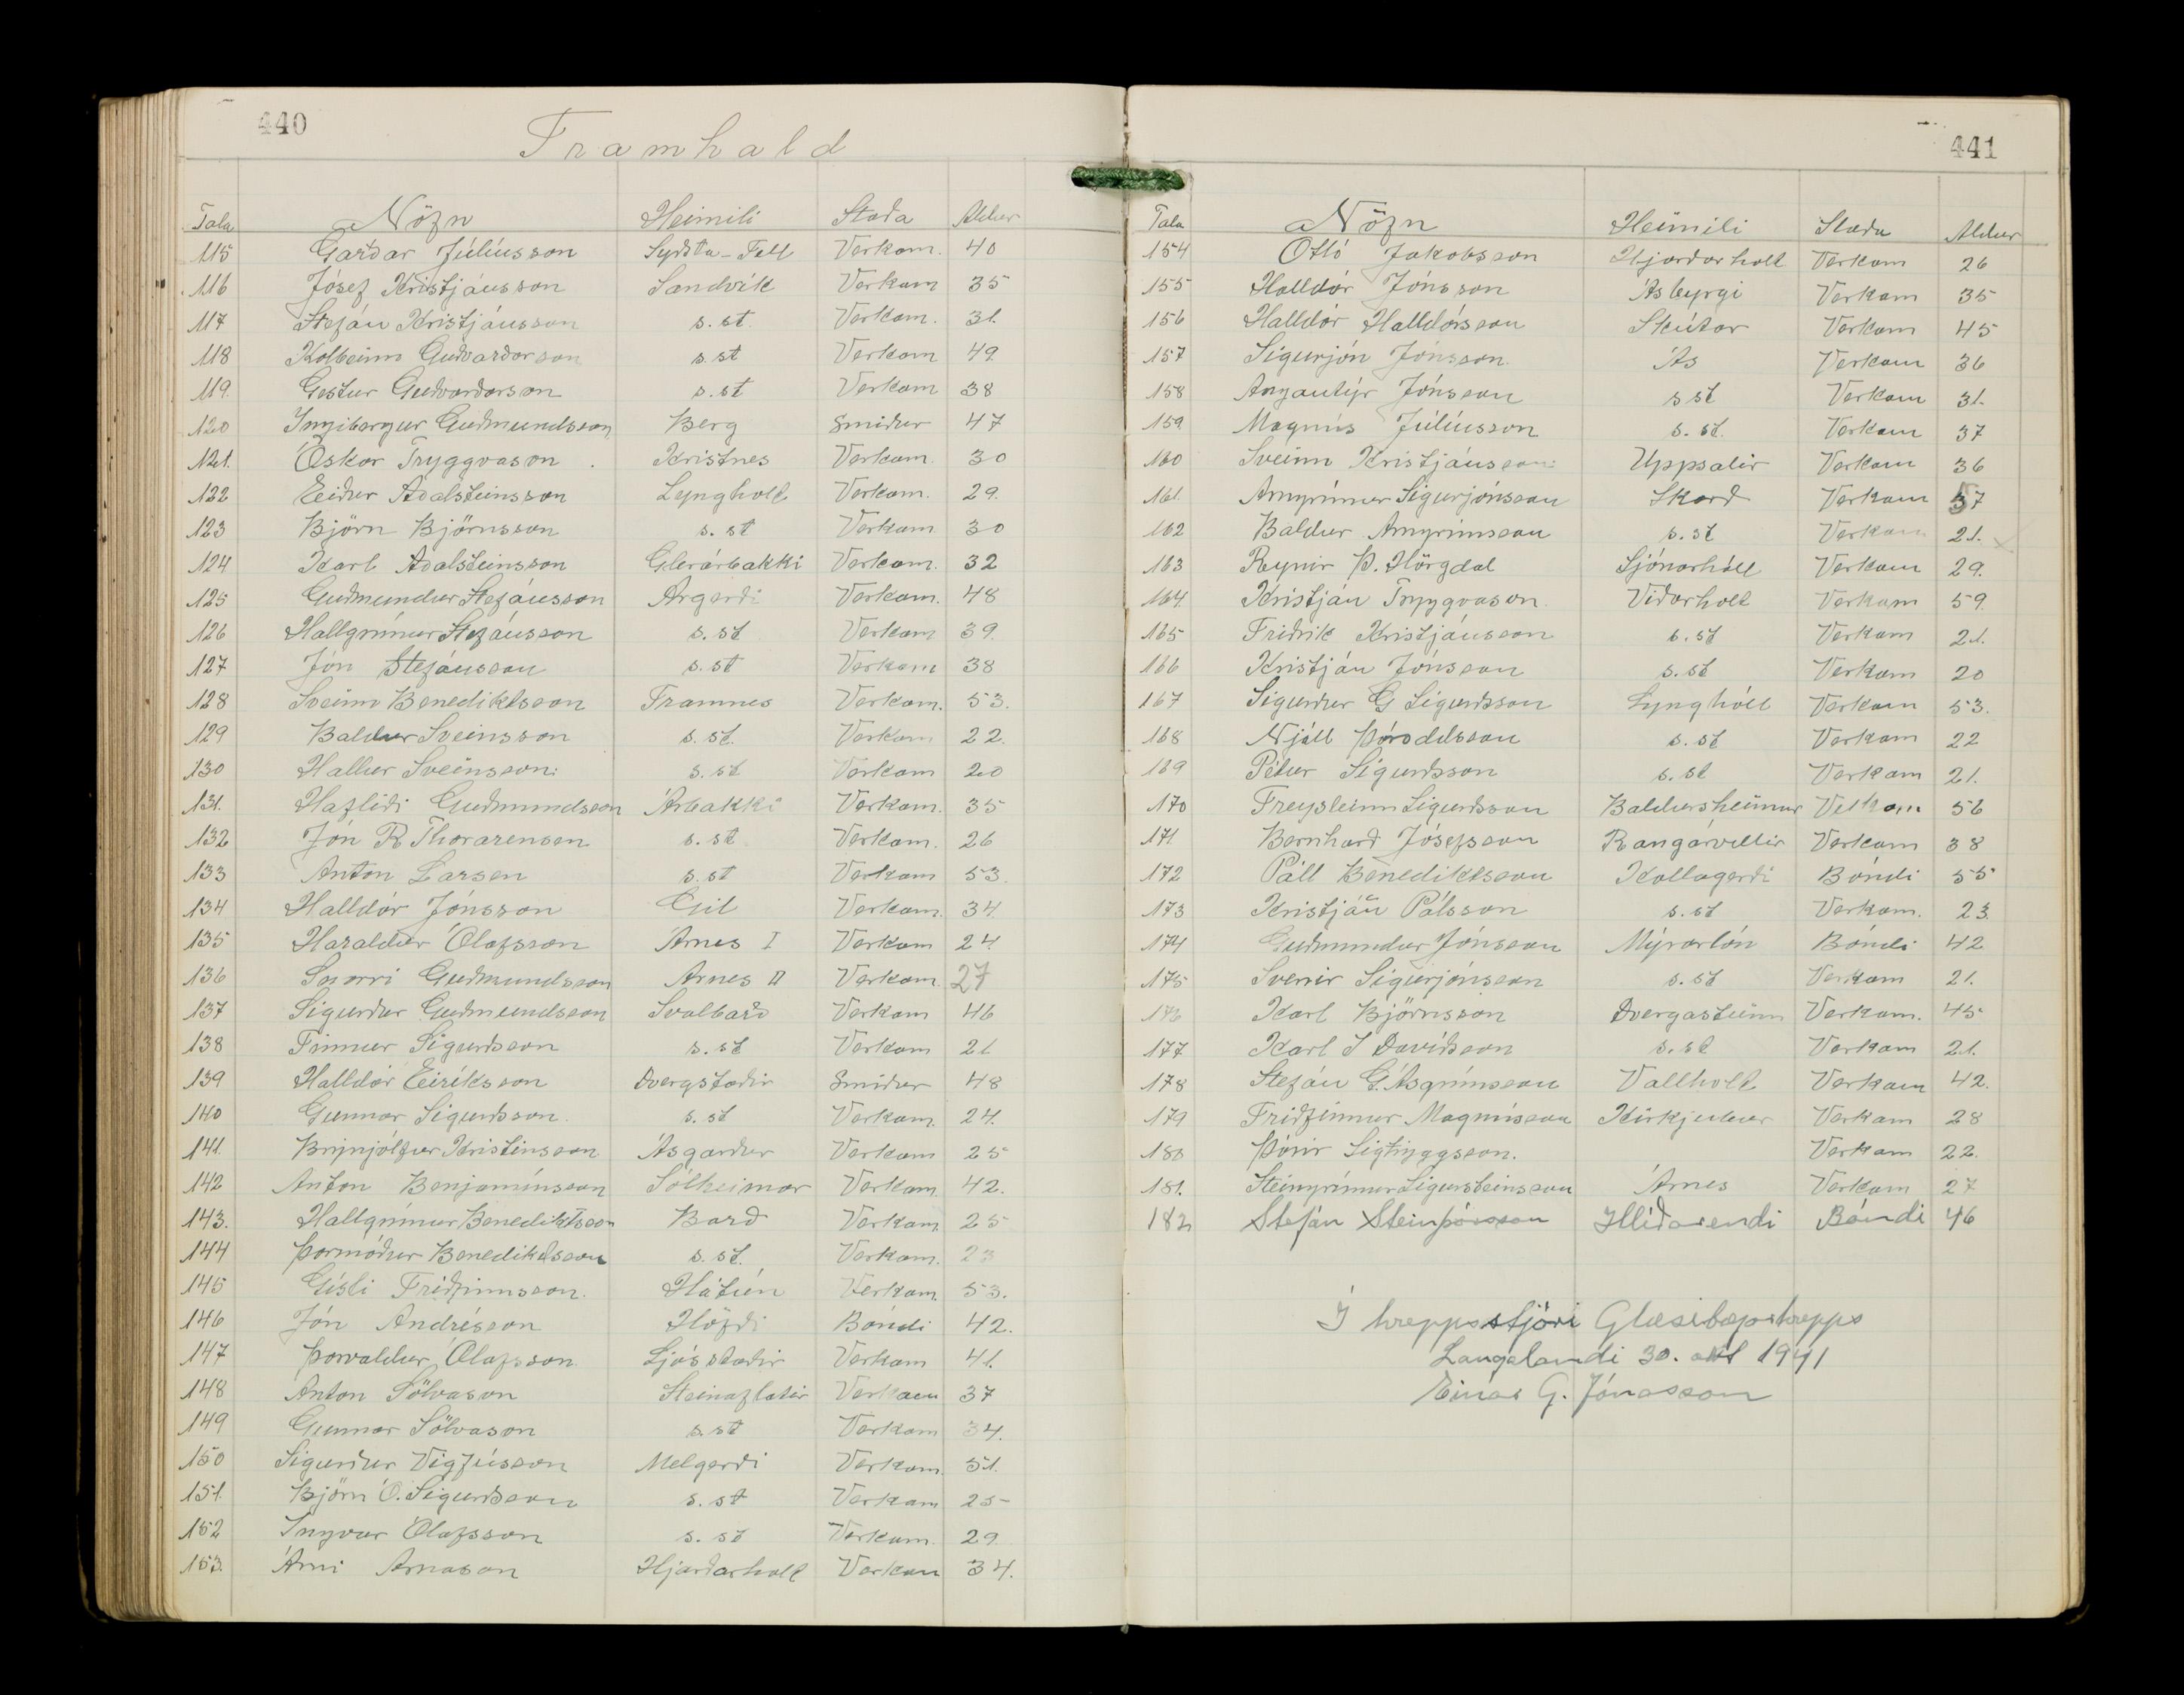 440
Framhald
Tala Nöfn Heimili Staða Aldur
115 Garðar Júlíusson Syðsta-Fell Verkam. 40
116 Jósef Kristjánsson Sandvík Verkam 35
117 Stefán Kristjánsson s.st. Verkam. 31.
118 Kolbeinn Guðvarðarson s.st Verkam 49.
119. Gestur Guðvarðarson s.st Verkam 38
120 Ingibergur Guðmundsson Berg Smiður 47
121. Óskar Tryggvason Kristnes Verkam. 30
122 Eiður Aðalsteinsson Lyngholt Verkam. 29.
123 Björn Björnsson s.st Verkam 30
124 Karl Aðalsteinsson Glerárbakki Verkam. 32
125 Guðmundur Stefánsson Árgerði Verkam. 48
126 Hallgrímur Stefánsson s.st. Verkam 39.
127 Jón Stefánsson s.st Verkam 38
128 Sveinn Benediktsson Framnes Verkam. 53.
129 Baldur Sveinsson s.st. Verkam 22.
130 Hallur Sveinsson. s.st Verkam 20
131. Hafliði Guðmundsson Árbakki Verkam. 35
132 Jón R Thorarensen s.st. Verkam. 26
133 Anton Larsen s.st Verkam 53.
134 Halldór Jónsson Gil Verkam. 34.
135 Haraldur Ólafsson Árnes I Verkam 24.
136 Snorri Guðmundsson Árnes II Verkam. 27
137 Sigurður Guðmundsson Svalbarð Verkam 46
138 Finnur Sigurðsson s.st Verkam 21
139 Halldór Eiríksson Dvergstaðir Smiður 48
140 Gunnar Sigurðsson. s.st Verkam. 24.
141. Brynjólfur Kristinsson Ásgarður Verkam 25
142 Anton Benjamínsson Sólheimar Verkam. 42.
143. Hallgrímur Benediktsson Barð Verkam. 25
144 Þormóður Benediktsson s.st. Verkam. 23
145 Gísli Friðfinnsson. Hátún Verkam. 53.
146 Jón Andrésson Höfði Bóndi 42.
147 Þorvaldur Ólafsson Ljósstaðir Verkam 41.
148 Anton Sölvason Steinaflatir Verkam 37
149 Gunnar Sölvason s.st Verkam 34.
150 Sigurður Vigfússon Melgerði Verkam. 51.
151. Björn Ó. Sigurðsson s.st Verkam 25
152 Ingvar Ólafsson s.st Verkam. 29.
153. Árni Árnason Hjarðarholt Verkam 34.
441
Tala Nöfn Heimili Staða Aldur
154 Ottó Jakobsson Hjarðarholt Verkam 26
155 Halldór Jónsson Ásbyrgi Verkam 35
156 Halldór Halldórsson Skútar Verkam 45
157 Sigurjón Jónsson. Ás Verkam 36
158 Angantýr Jónsson s st Verkam 31.
159. Magnús Júlíusson s.st. Verkam 37
160 Sveinn Kristjánsson: Uppsalir Verkam 36
161. Arngrímur Sigurjónsson Skarð Verkam 57
162 Baldur Arngrímsson s.st Verkam 21. x
163 Reynir Þ. Hörgdal Sjónarhóll Verkam 29.
164. Kristján Tryggvason. Viðarholt Verkam 59.
165 Friðrik Kristjánsson s.st Verkam 21.
166 Kristján Jónsson s.st Verkam 20
167 Sigurður G Sigurðsson Lynghóll Verkam 53.
168 Njáll Þóroddsson s.st Verkam 22
169 Pétur Sigurðsson s.st Verkam 21.
170 Freysteinn Sigurðsson Baldursheimur Verkam 56
171 Bernharð Jósefsson Rangárvellir Verkam 38
172 Páll Benediktsson Kollugerði Bóndi 55
173 Kristján Pálsson s.st Verkam. 23.
174 Guðmundur Jónsson Mýrarlón Bóndi 42
175 Sverrir Sigurjónsson s.st Verkam 21.
176 Karl Björnsson Dvergasteinn Verkam. 45
177. Karl S Davíðsson s.st Verkam 21.
178 Stefán G. Ásgrímsson Vallholt Verkam 42.
179 Friðfinnur Magnússon Kirkjuhvoll Verkam 28
180 Þórir Sigtryggsson. Verkam 22.
181. Steingrímur Sigursteinsson Árnes Verkam 27
182 Stefán Steinþórsson Hlíðarendi Bóndi 46
Í hreppsstjóri Glæsibæjarhrepps
Laugalandi 30. okt 1941
Einar G. Jónasson